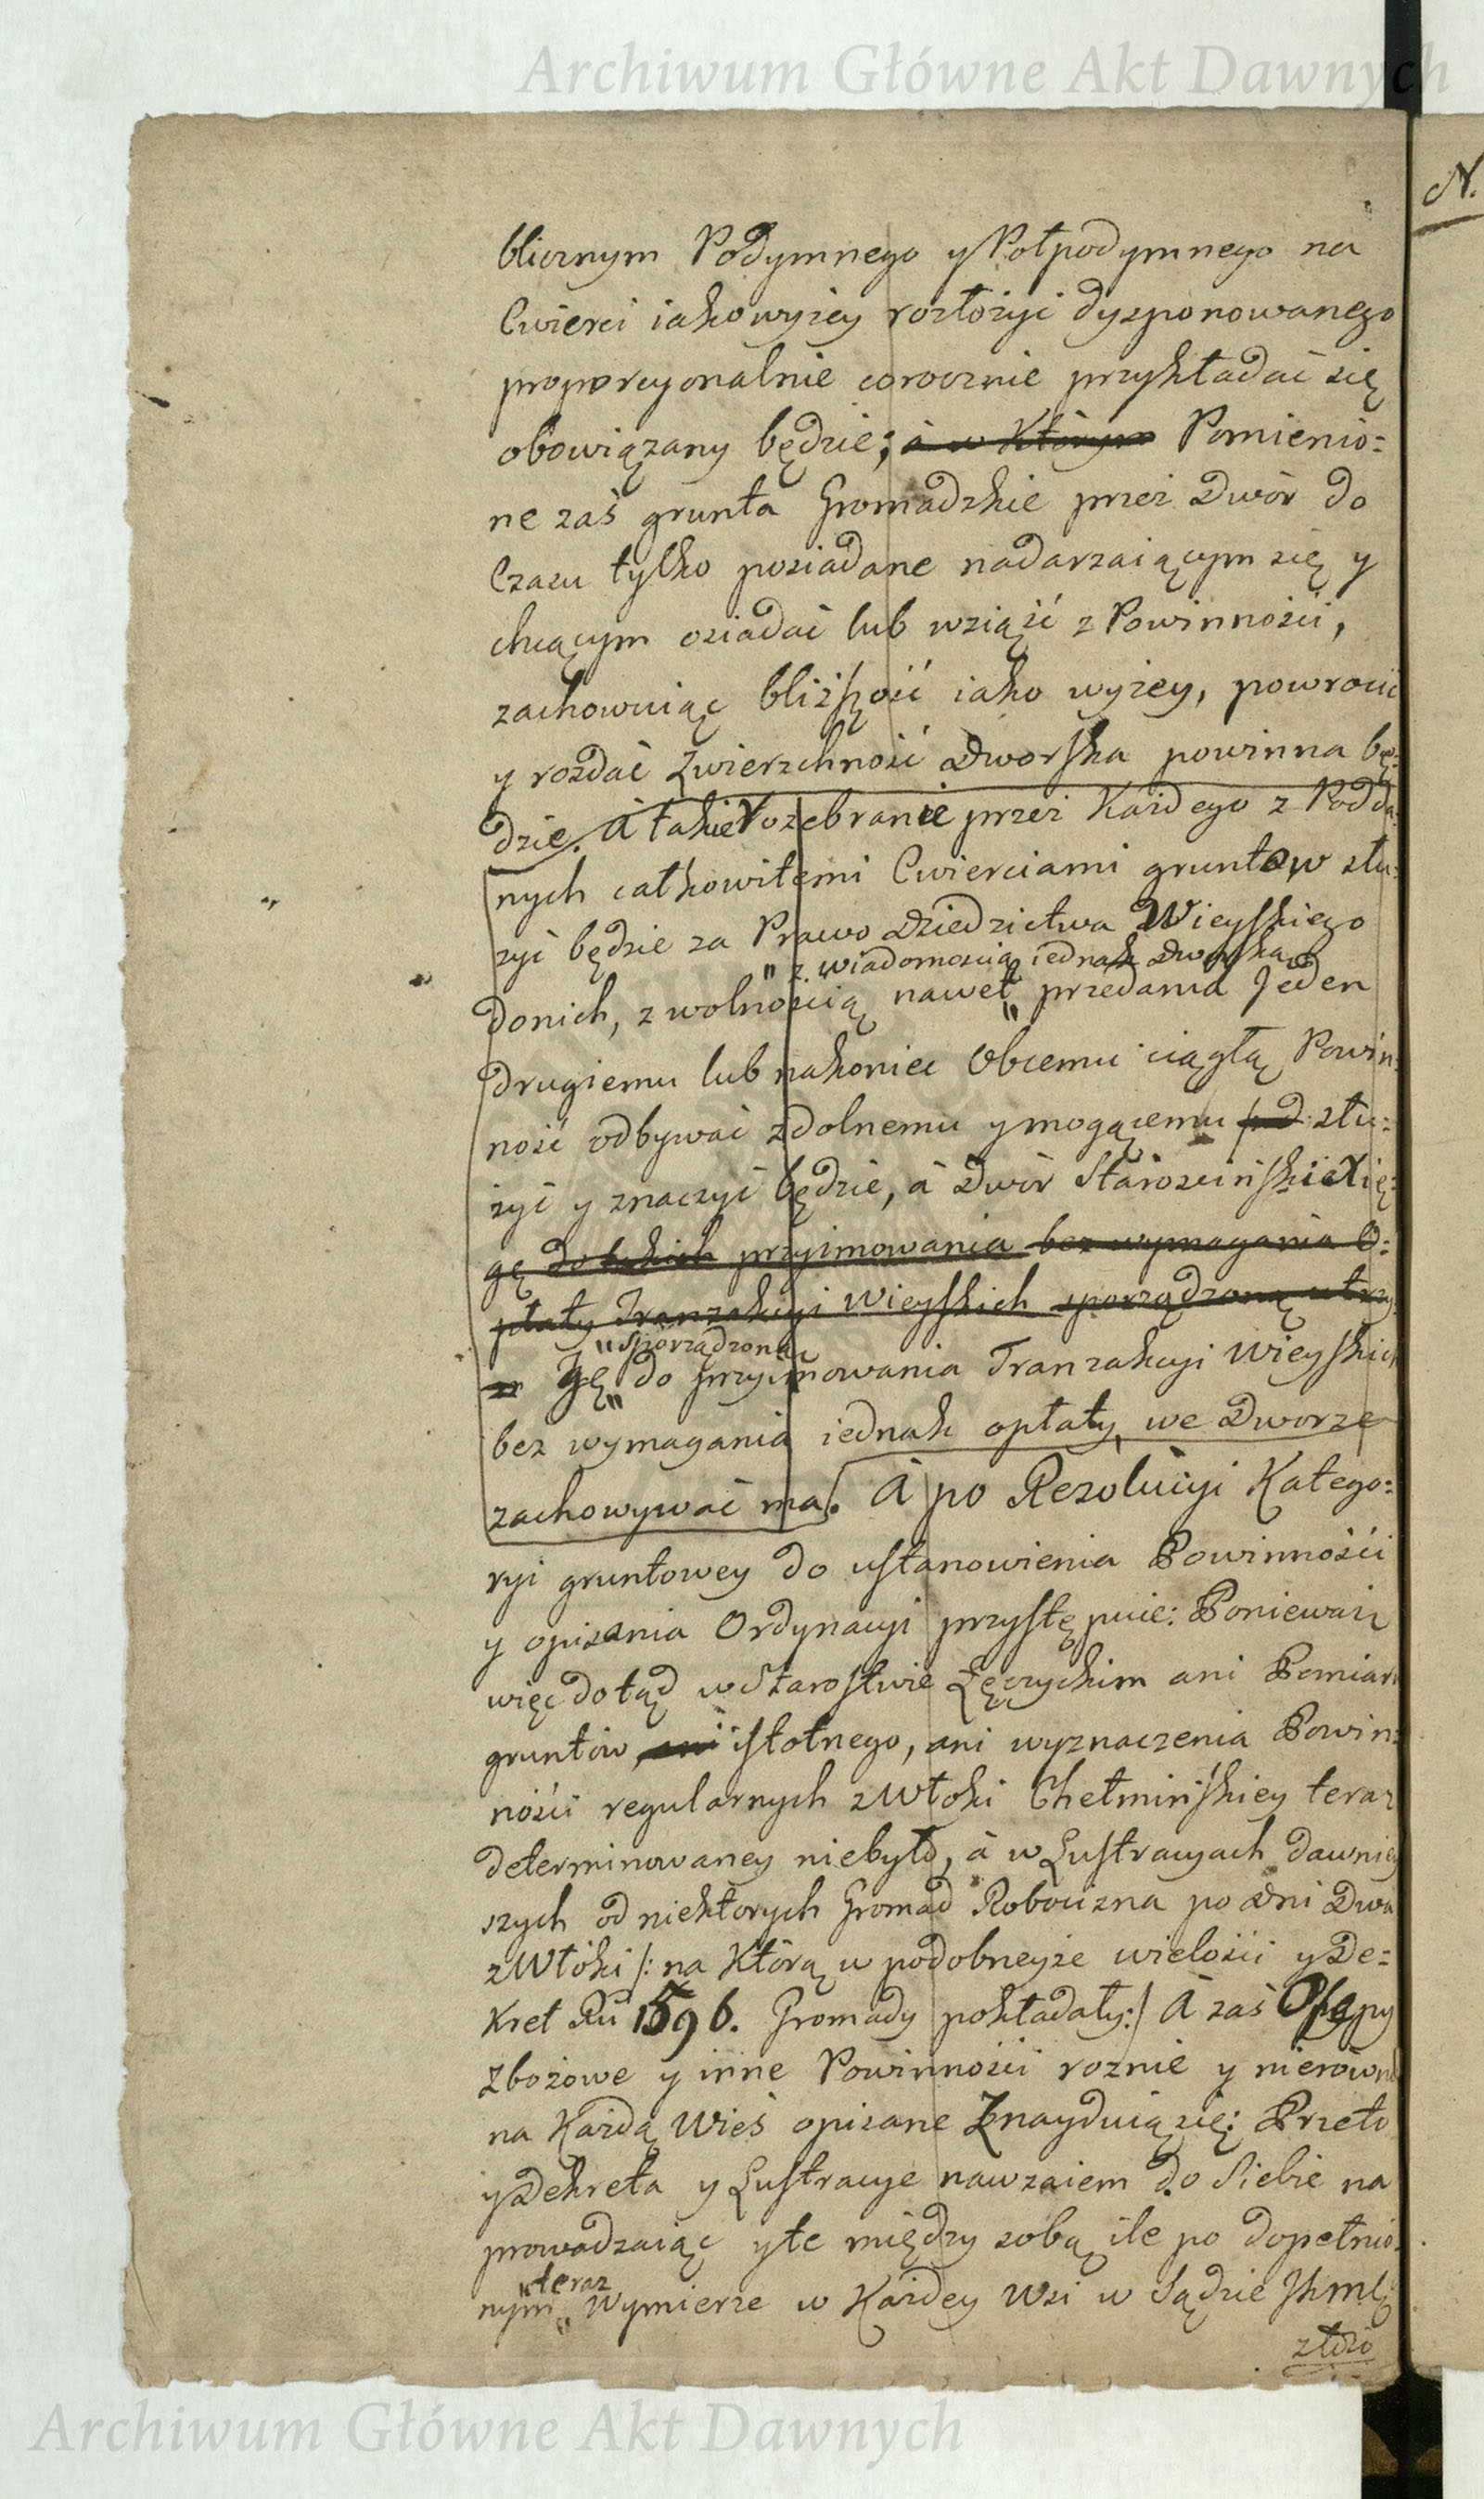 Archiwum Główne Akt Dawnych
N.
blicznym Podymnego y Połpodymnego na
Cwierci iako wyżey rozłożyć dysponowanego
proporcyonalnie corocznie przykładać się
obowiązany będzie; à w Którym Pomienio:
ne zaś grunta Gromadzkie przez Dwór do
Czasu tylko posiadane nadarzaiącym się y
chcącym osiadać lub wziąść z Powinności,
zachowuiąc bliższość iako wyżey, powrócić
y rozdać Zwierzchność Dworska powinna bę:
dzie. à takie Rozebranie przez Każdego z Podda:
nych całkowitemi Cwierciami gruntow słu:
żyć będzie za Prawo Dziedzictwa Wieyskiego
" z wiadomością iednak Dworską
do nich, z wolnością nawet " przedania Jeden
drugiemu lub nakoniec Obcemu ciągłą Powin:
ność odbywać zdolnemu y mogącemu słu:
żyć y znaczyć będzie, à Dwór Starościński Xię:
gę do takich przyimowania bez wymagania O:
płaty Tranzakcyi Wieyskich sporządzoną utrzy
" sporządzoną
gę " do przyimowania Tranzakcyi Wieyskich
bez wymagania iednak opłaty, we Dworze
zachowywać ma. À po Rezolucyi Katego:
ryi gruntowey do ustanowienia Powinności
y opisania Ordynacyi przystępuie: Ponieważ
więc dotąd w Starostwie Łęczyckim ani Pomiaru
gruntów, ani istotnego, ani wyznaczenia Powin:
ności regularnych z Włoki Chełmińskiey teraz
determinowaney niebyło, à w Lustracyach dawniey
szych od niektorych Gromad Robocizna po dni Dwa
z Włóki /: na Którą w podobneyże wielości y De:
kret Ru 1596. Gromady pokładały :/ À zaś Osepy
Zbożowe y inne Powinności roznie y nierówno
na Każdą Wieś opisane Znayduią się: Przeto
y Dekreta y Lustracye nawzaiem do Siebie na
prowadzaiąc y te między sobą ile po dopełnio:
" teraz
nym " Wymierze w Każdey Wsi w Sądzie
złożo
Archiwum Główne Akt Dawnych